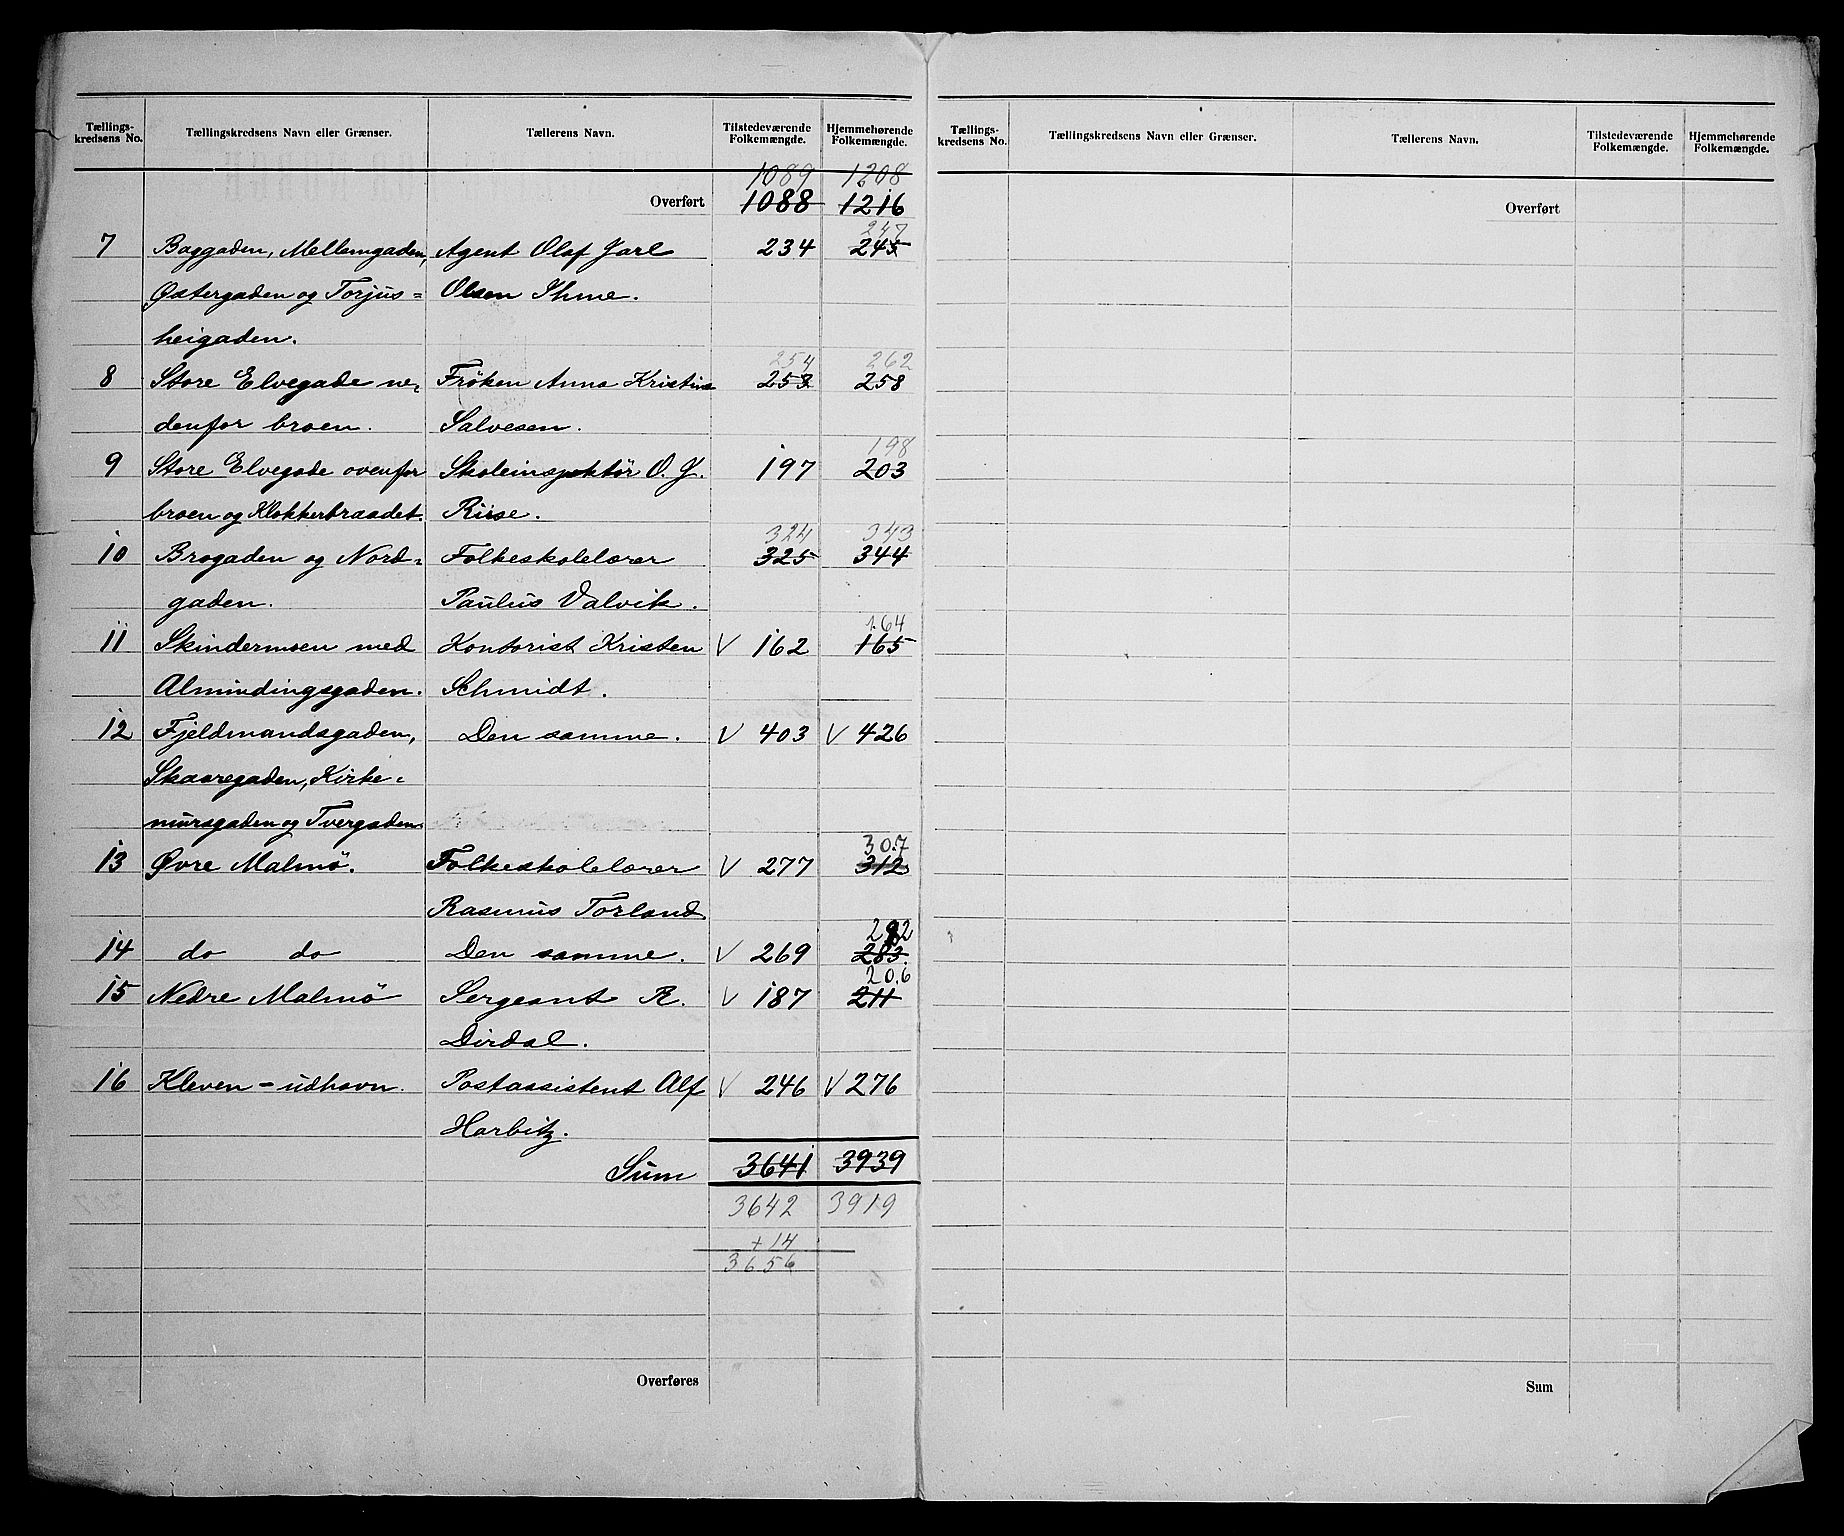 Tællings- kredsens No. Tællingskredsens Navn eller Grænser. Tællerens Navn. Tilstedeværende Folkemængde. Hjemmehørende Folkemængde.
1089 1208
Overført 1088 1216
247
7 Baggaden, Mellemgaden, Agent Olaf Jarl 234 245
Østergaden og Torjus= Olsen Ihme.
heigaden.
254 262
8 Store Elvegade ne- Fröken Anna Kristine 253 258
denfor broen. Salvesen.
198
9 Store Elvegade ovenfor Skoleinspektör O. J. 197 203
broen og Klokkerbraadet. Riise.
324 343
10 Brogaden og Nord- Folkeskolelærer 325 344
gaden. Paulus Valvik.
164
11 Skindermoen med Kontorist Kristen V 162 165
Almindingsgaden. Schmidt.
12 Fjeldmandsgaden, Den samme. V 403 V 426
Skaaregaden, Kirke-
mursgaden og Tvergaden.
307
13 Øvre Malmö. Folkeskolelærer V 277 312
Rasmus Torland
282
14 do do Den samme. V 269 283
206
15 Nedre Malmö Sergeant R. V 187 211
Dirdal.
16 Kleven - udhavn. Postassistent Alf V 246 V 276
Harbitz.
Sum 3641 3939
3642 3919
+ 14
3656
Overføres
Tællings- kredsens No. Tællingskredsens Navn eller Grænser. Tællerens Navn. Tilstedeværende Folkemængde. Hjemmehørende Folkemængde.
Overført
Sum